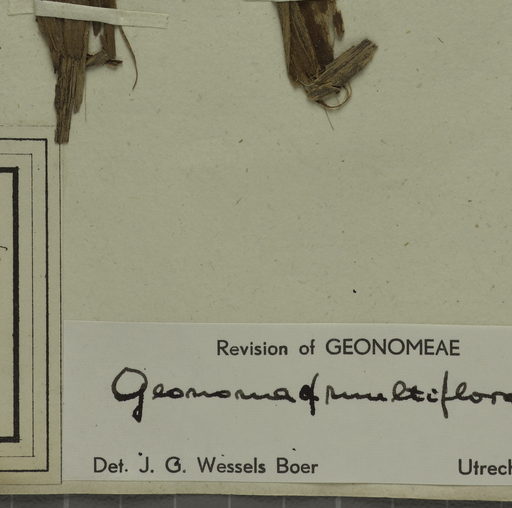 Revision of GEONOMEAE
Geonoma cf multiflora
Det. J. G. Wessels Boer
Utrech